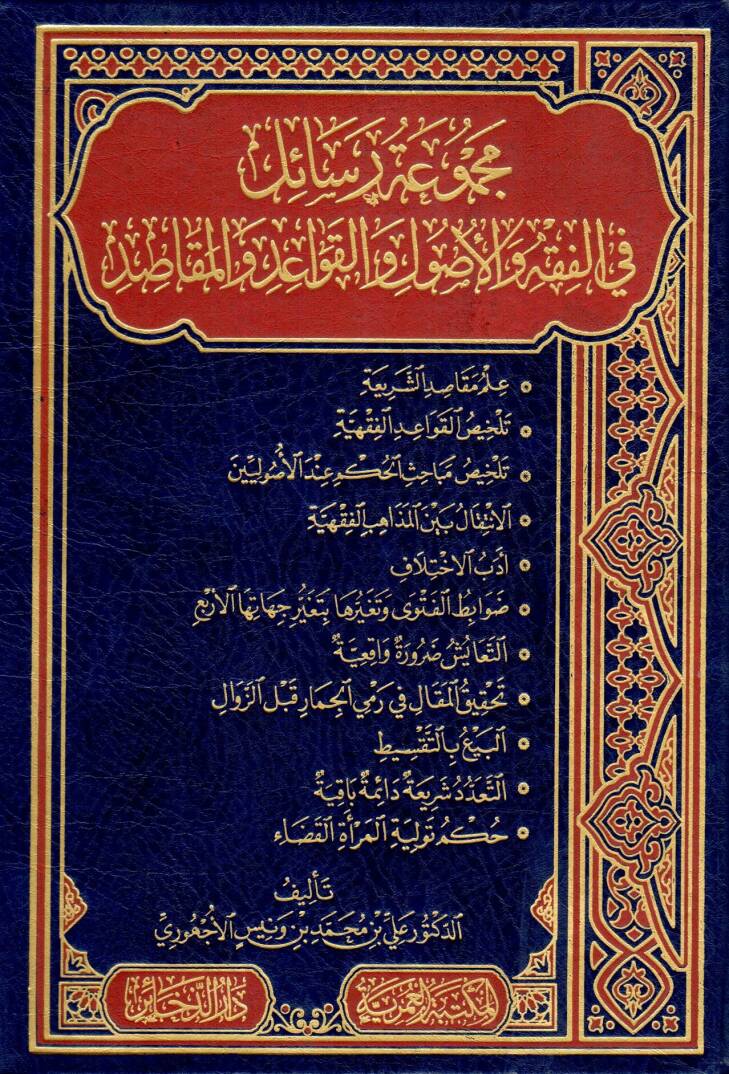 مَجْمُوعَةُ رَسَائِل
فِي الفِقْهِ وَالأُصُولِ وَالقَوَاعِدِ وَالمَقَاصِدِ
عِلْمُ مَقَاصِدِ الشَّرِيعَةِ
تَلْخِيصُ القَوَاعِدِ الفِقْهِيَّةِ
تَلْخِيصُ مَبَاحِثِ الحُكْمِ عِنْدَ الأُصُولِيِّينَ
الانْتِقَالُ بَيْنَ المَذَاهِبِ الفِقْهِيَّةِ
أَدَبُ الاخْتِلَافِ
ضَوَابِطُ الفَتْوَى وَتَغَيُّرُهَا بِتَغَيُّرِ جِهَاتِهَا الأَرْبَعِ
التَّعَايُشُ ضَرُورَةٌ وَاقِعِيَّةٌ
تَحْقِيقُ المَقَالِ فِي رَمْيِ الجِمَارِ قَبْلَ الزَّوَالِ
البَيْعُ بِالتَّقْسِيطِ
التَّعَدُّدُ شَرِيعَةٌ دَائِمَةٌ بَاقِيَةٌ
حُكْمُ تَوْلِيَةِ المَرْأَةِ القَضَاءَ
تَأْلِيفُ
الدُّكْتُورِ عَلِيِّ بْنِ مُحَمَّدِ بْنِ وَنِيسٍ الأُجْهُورِيِّ
المكتبة العمرية
دار الذخائر